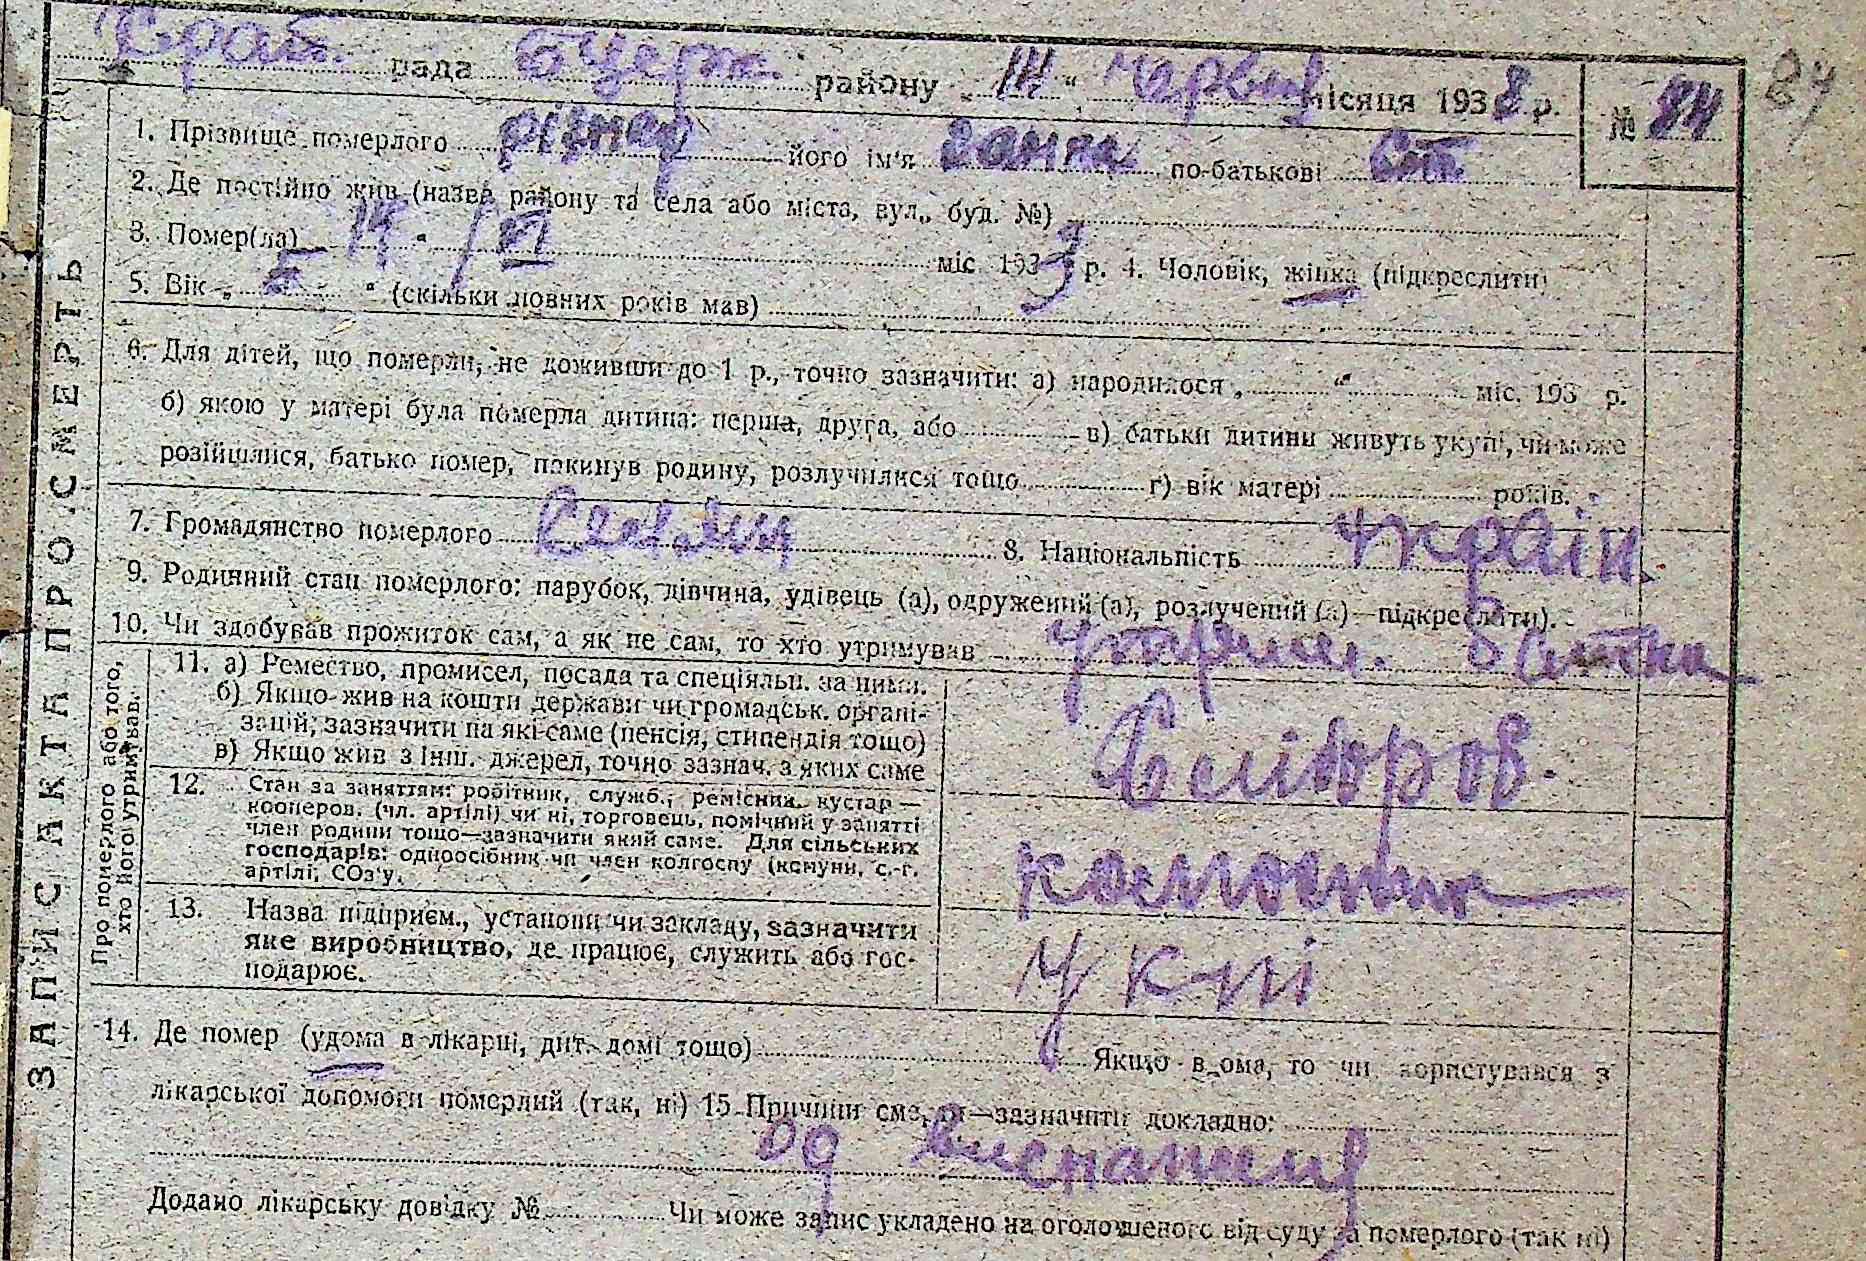 рада Б Церк. району „14“ червня місяця 1933 р. № 84 84
1. Прізвище померлого Різнер його ім'я Ганна по-батькові Ст
2. Де постійно жив (назва району та села або міста, вул., буд. №)
3. Помер(ла) 14 “ / VI міс 1933 р. 4. Чоловік, жінка (підкреслити)
5. Вік „ 5 “ (скільки повних років мав)
6. Для дітей, що померли, не доживши до 1 р., точно зазначити: а) народилося „ “ міс. 193 р.
б) якою у матері була померла дитина: перша, друга, або в) батьки дитини живуть укупі, чи може
розійшлися, батько помер, покинув родину, розлучилися тощо г) вік матері років.
7. Громадянство померлого Селян 8. Національність Україн.
9. Родинний стан померлого: парубок, дівчина, удівець (а), одружений (а), розлучений (а)—підкреслити).
10. Чи здобував прожиток сам, а як не сам, то хто утримував утриман. батька
11. а) Ремество, промисел, посада та спеціяльн. за ними.
б) Якщо жив на кошти держави чи громадськ. органі-
зацій, зазначити на які саме (пенсія, стипендія тощо)
в) Якщо жив з інш. джерел, точно зазнач. з яких саме
12. Стан за заняттям: робітник, служб., ремісник, кустар—
кооперов. (чл. артілі) чи ні, торговець, помічний у занятті
член родини тощо—зазначити який саме. Для сільських
господарів: одноосібник чи член колгоспу (комуни, с.-г.
артілі, СОЗ'у.
колгоспник
13. Назва підприєм., установи чи закладу, зазначити
яке виробництво, де працює, служить або гос-
подарює.
у
14. Де помер (удома в лікарні, дит. домі тощо) Якщо вдома, то чи користувався з
лікарської допомоги померлий (так, ні) 15. Причини смерти—зазначити докладно:
од виснаження
Додано лікарську довідку № Чи може запис укладено на оголошеного від суду за померлого (так ні)
ЗАПИС АКТА ПРО СМЕРТЬ
Про померлого або того,
хто його утримував.